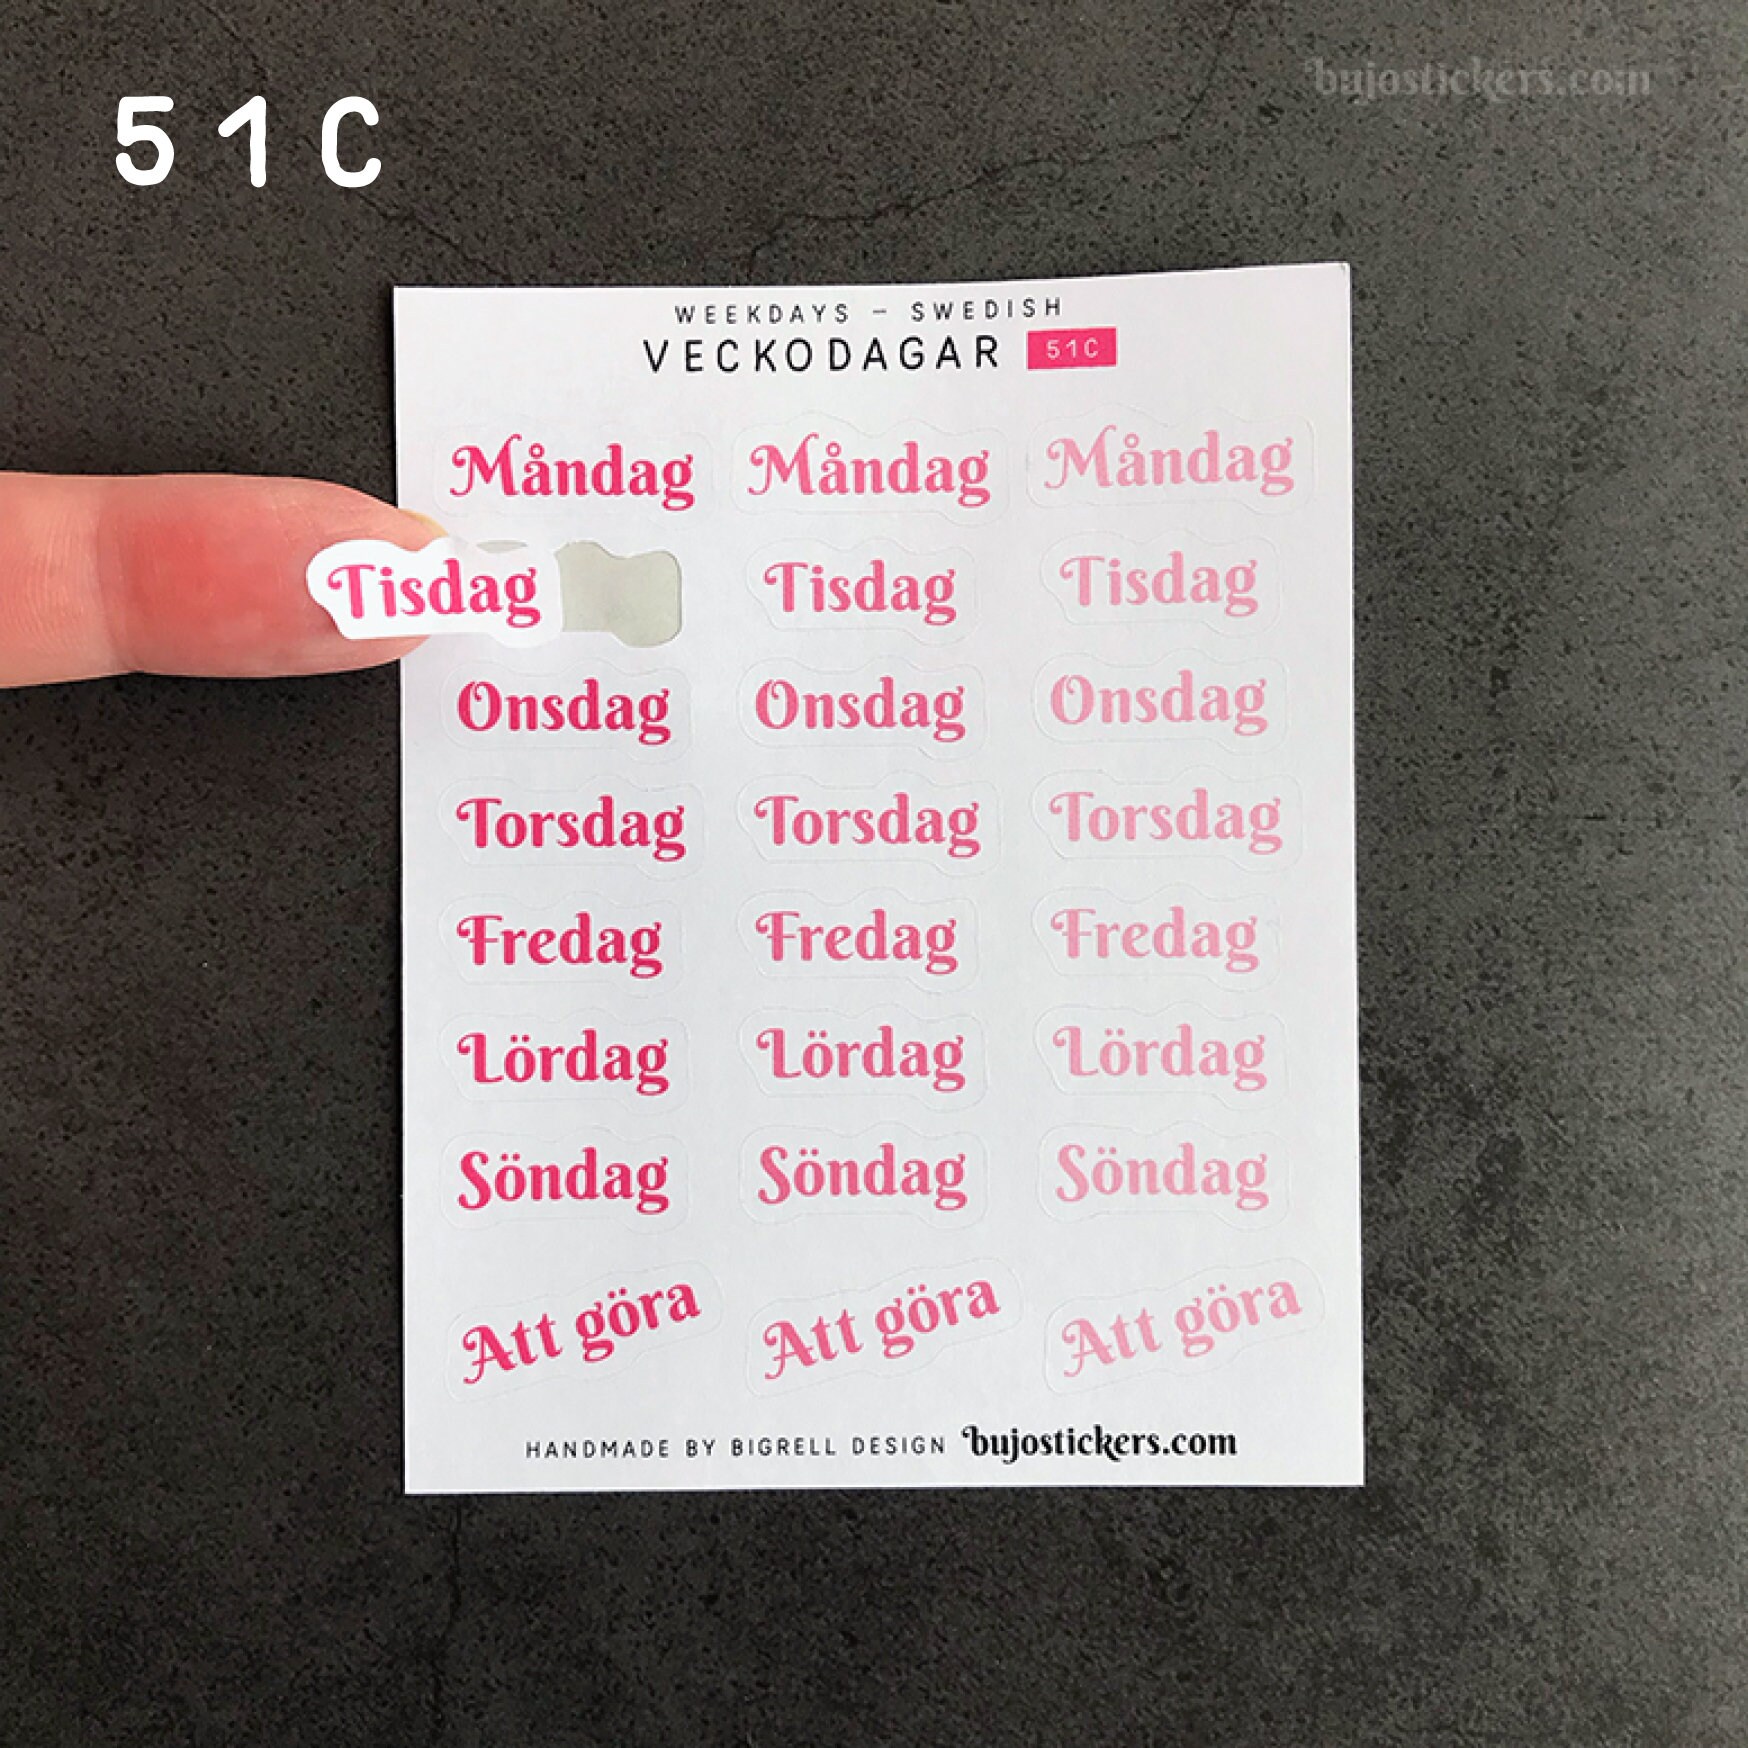 bujostickers.com
51C
WEEKDAYS – SWEDISH
VECKODAGAR 51C
Måndag Måndag Måndag
Tisdag Tisdag Tisdag
Onsdag Onsdag Onsdag
Torsdag Torsdag Torsdag
Fredag Fredag Fredag
Lördag Lördag Lördag
Söndag Söndag Söndag
Att göra Att göra Att göra
HANDMADE BY BIGRELL DESIGN bujostickers.com